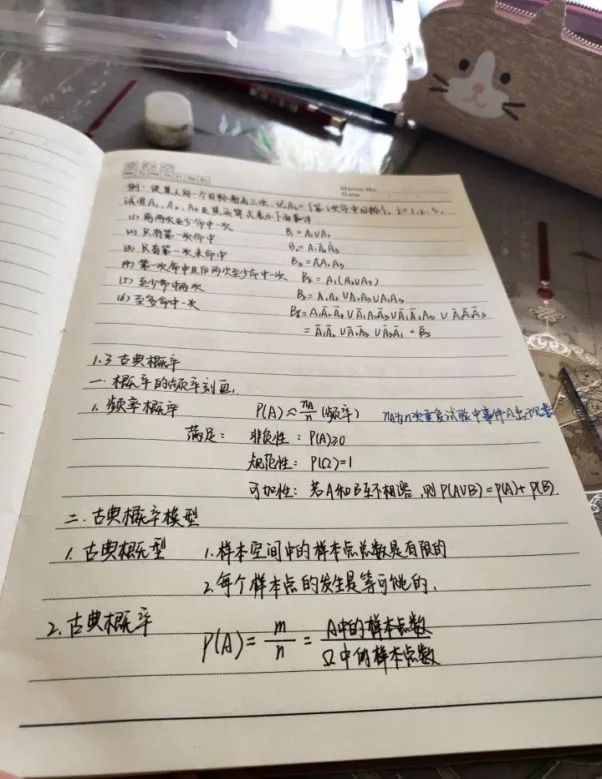 Memo No.
Date
例：设某人向一个目标射击三次，记Aᵢ={第i次命中目标}，i=1,2,3,
试用A₁，A₂，A₃及其运算式表示下面事件
(1) 前两次至少命中一次 B₁=A₁∪A₂
(2) 只有第一次命中 B₂=A₁Ā₂Ā₃
(3) 只有第一次未命中 B₃=Ā₁A₂A₃
(4) 第一次命中且后两次至少命中一次 B₄=A₁(A₂∪A₃)
(5) 至少命中两次 B₅=A₁A₂∪A₂A₃∪A₁A₃
(6) 至多命中一次 B₆=
1.3 古典概率
一. 概率的频率刻画.
1. 频率概率 P(A)≈nA/n (频率) nA为n次重复试验中事件A出现
满足： 非负性：P(A)≥0
规范性：P(Ω)=1
可加性：若A和B互不相容，则P(A∪B)=P(A)+P(B)
二. 古典概率模型
1. 古典概型 1.样本空间中的样本点总数是有限的
2.每个样本点的发生是等可能的.
2. 古典概率 P(A)=m/n=A中的样本点数/Ω中的样本点数